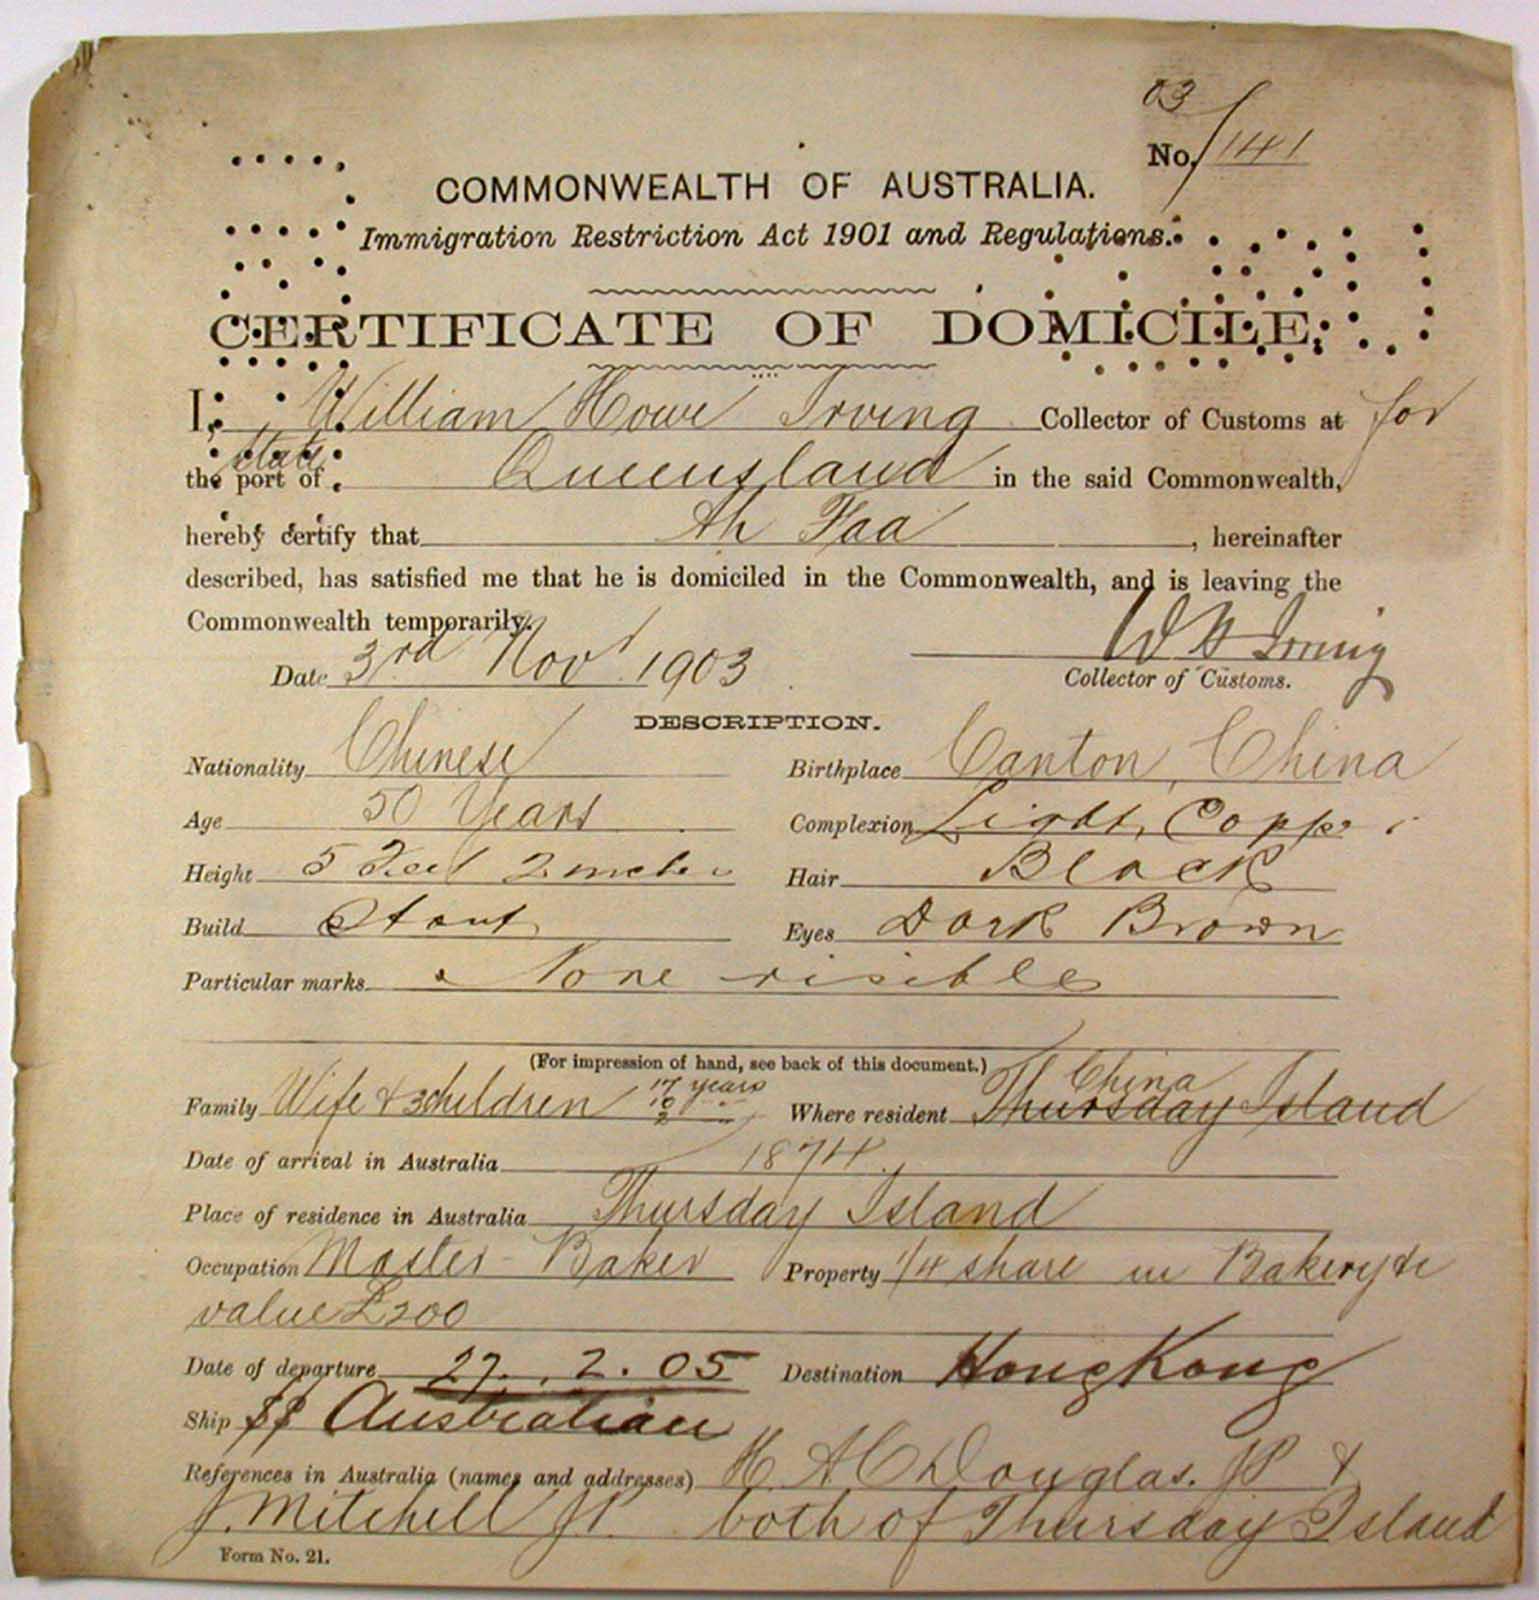 03
No. /141
COMMONWEALTH OF AUSTRALIA.
Immigration Restriction Act 1901 and Regulations.
CERTIFICATE OF DOMICILE.
I, William Howe Irving Collector of Customs at for
State
the port of Queensland in the said Commonwealth,
hereby certify that Ah Faa, hereinafter
described, has satisfied me that he is domiciled in the Commonwealth, and is leaving the
Commonwealth temporarily.
W H Irving
Date 3rd Nov 1903
Collector of Customs.
DESCRIPTION.
Nationality Chinese Birthplace Canton, China
Age 50 Years Complexion Light, Copper
Height 5 Feet 2 inches Hair Black
Build Stout Eyes Dark Brown
Particular marks None visible
(For impression of hand, see back of this document.)
Family Wife & 3 children 17 years 10 " 2 " Where resident China Thursday Island
Date of arrival in Australia 1874.
Place of residence in Australia Thursday Island
Occupation Master Baker Property 1/4 share in Bakery &c
value £200
Date of departure 27. 2. 05 Destination Hong Kong
Ship SS Australian
References in Australia (names and addresses) H A C Douglas. JP &
J. Mitchell JP. both of Thursday Island
Form No. 21.